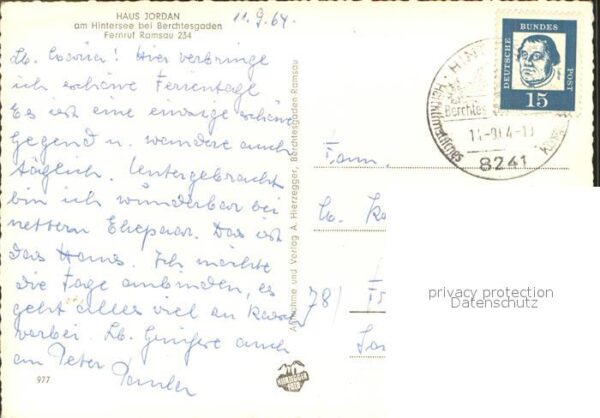 HAUS JORDAN
am Hintersee bei Berchtesgaden
Fernruf Ramsau 234
11.9.64.
Hier verbringe
ich schöne Ferientage
Es ist eine einzige schöne
Gegend u. wandere auch
täglich. Untergebracht
bin ich wunderbar bei
nettem Ehepaar. Das ist
das Haus. Ich möchte
die Tage anbinden, es
geht alles viel zu rasch
vorbei. Lb. Grüsse auch
an Peter
977
Aufnahme und Verlag A. Hierzegger, Berchtesgaden-Ramsau
HIERZEGGER
DEUTSCHE BUNDES POST
15
Berchtes
8241
Fam.
Lb.
78/
privacy protection
Datenschutz